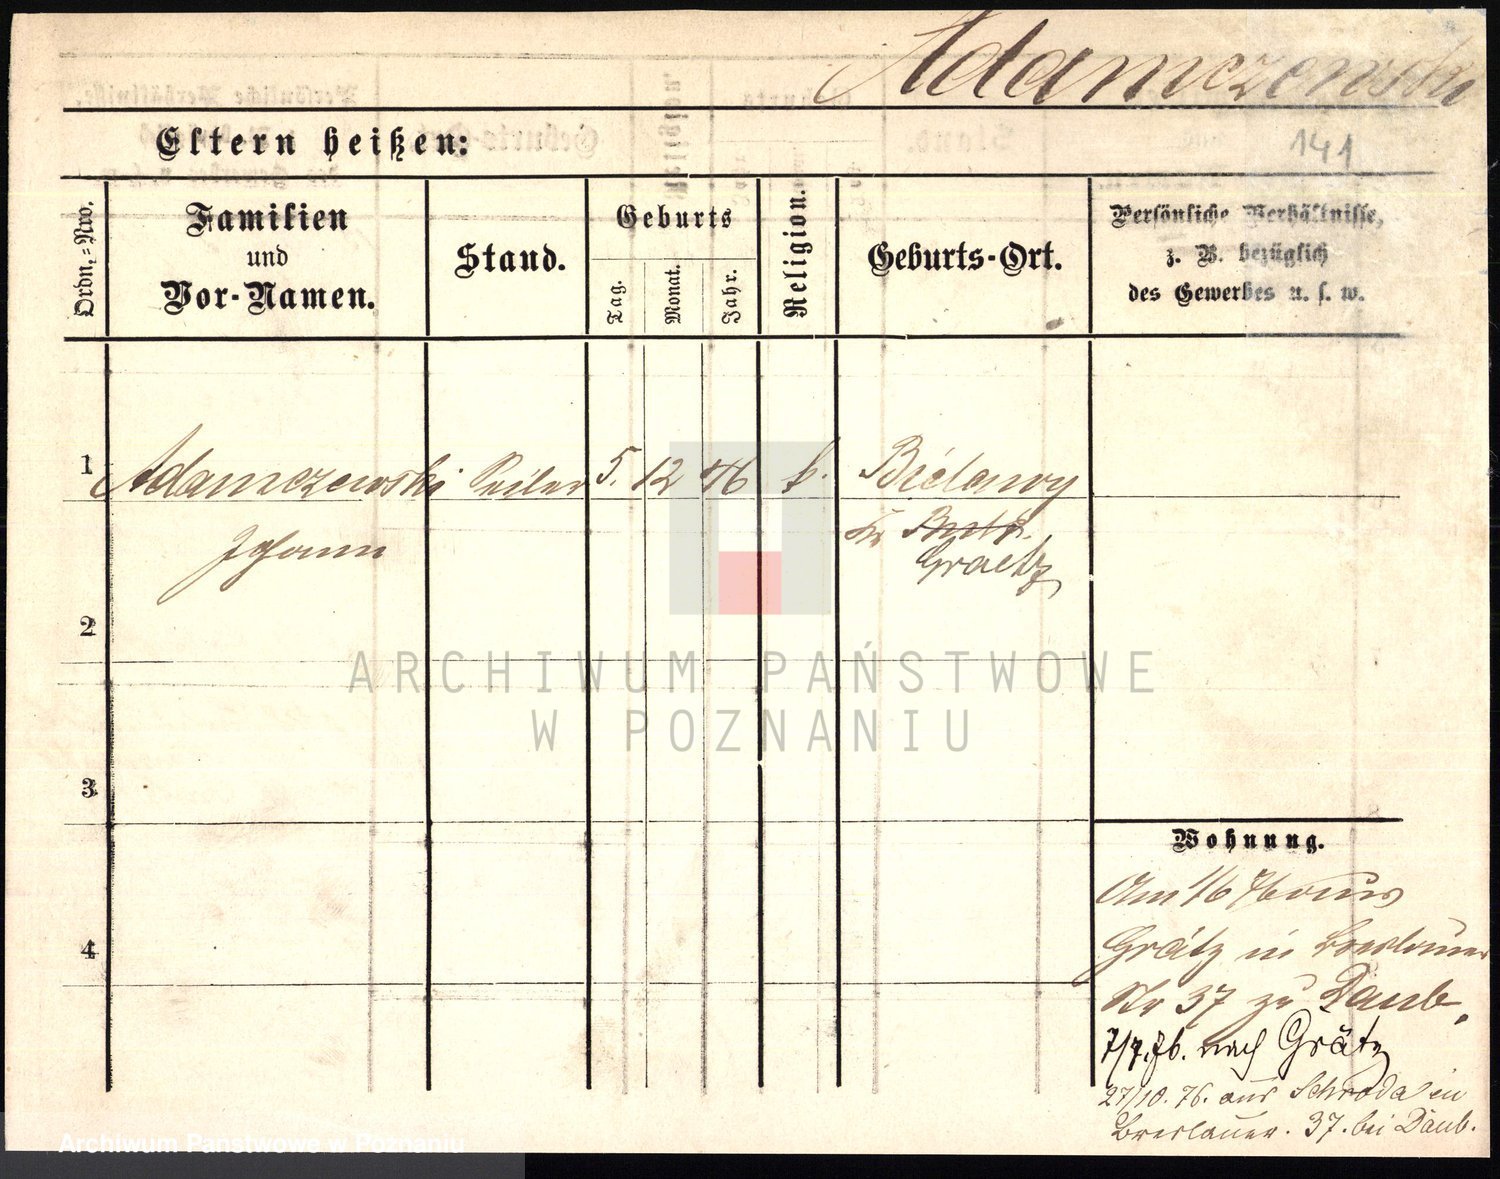 Adamczewski
141
Eltern heißen:
Ordn.-Nro.
Familien
und
Vor-Namen.
Stand.
Geburts
Tag.
Monat.
Jahr.
Religion.
Geburts-Ort.
Persönliche Verhältnisse,
z. B. bezüglich
des Gewerbes u. s. w.
1
Adamczewski Seiler 5. 12 46 k. Bielawy
Johann
Kr
Graetz
2
3
4
Wohnung.
Am 1/6 76 aus
Grätz in Breslauer
Nr 37 zu Daub.
7/7.76. nach Grätz
27/10.76. aus Schroda in
Breslauer. 37. bei Daub.
ARCHIWUM PAŃSTWOWE
W POZNANIU
Archiwum Państwowe w Poznaniu